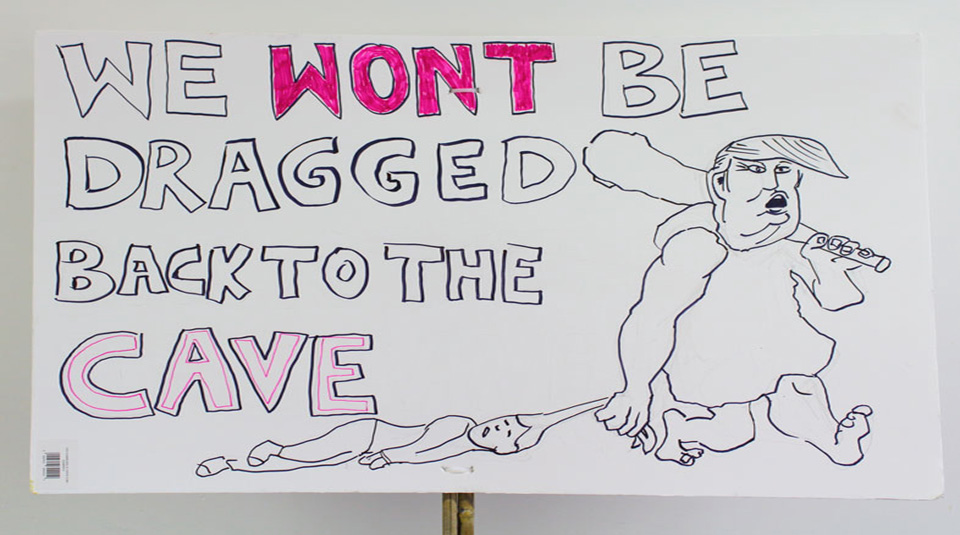 WE WONT BE
DRAGGED
BACK TO THE
CAVE